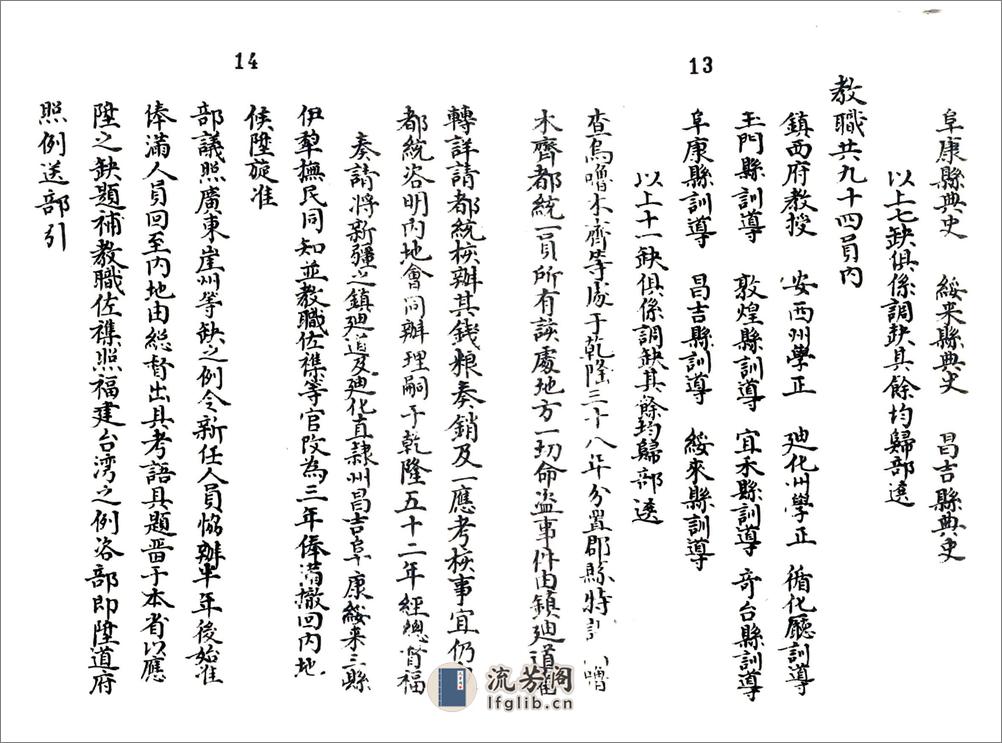 13
阜康縣典史 綏来縣典史 昌吉縣典史
以上七缺俱係調缺其餘均歸部選
教職共九十四員內
鎮西府教授 安西州學正 廸化州學正 循化廳訓導
玉門縣訓導 敦煌縣訓導 宜禾縣訓導 奇台縣訓導
阜康縣訓導 昌吉縣訓導 綏來縣訓導
以上十一缺俱係調缺其餘均歸部選
查烏嚕木齊等處于乾隆三十八年分置郡縣特 嚕
木齊都統一員所有該處地方一切命盗事件由鎮廸道
14
轉詳請都統核辦其錢粮奏銷及一應考核事宜仍
都統咨明內地會同辦理嗣于乾隆五十二年經總督福
奏請將新疆之鎮廸道及廸化直隷州昌吉阜康綏来三縣
伊犁撫民同知並教職佐襍等官改為三年俸滿撤回內地
候陞旋准
部議照廣東崖州等缺之例令新任人員恊辦半年後始准
俸滿人員回至內地由總督出具考語具題晋于本省以應
陞之缺題補教職佐襍照福建台湾之例咨部即陞道府
照例送部引
流芳阁
lfglib.cn